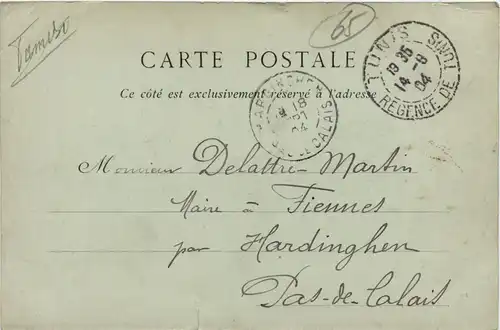 Tambo
65
CARTE POSTALE
TUNIS
19 35
14 -8
04
RÉGENCE DE TUNIS
Ce côté est exclusivement réservé à l'adresse
18
04
PAS DE CALAIS
Monsieur Delattre-Martin
Maire à Fiennes
par Hardinghen
Pas-de-Calais